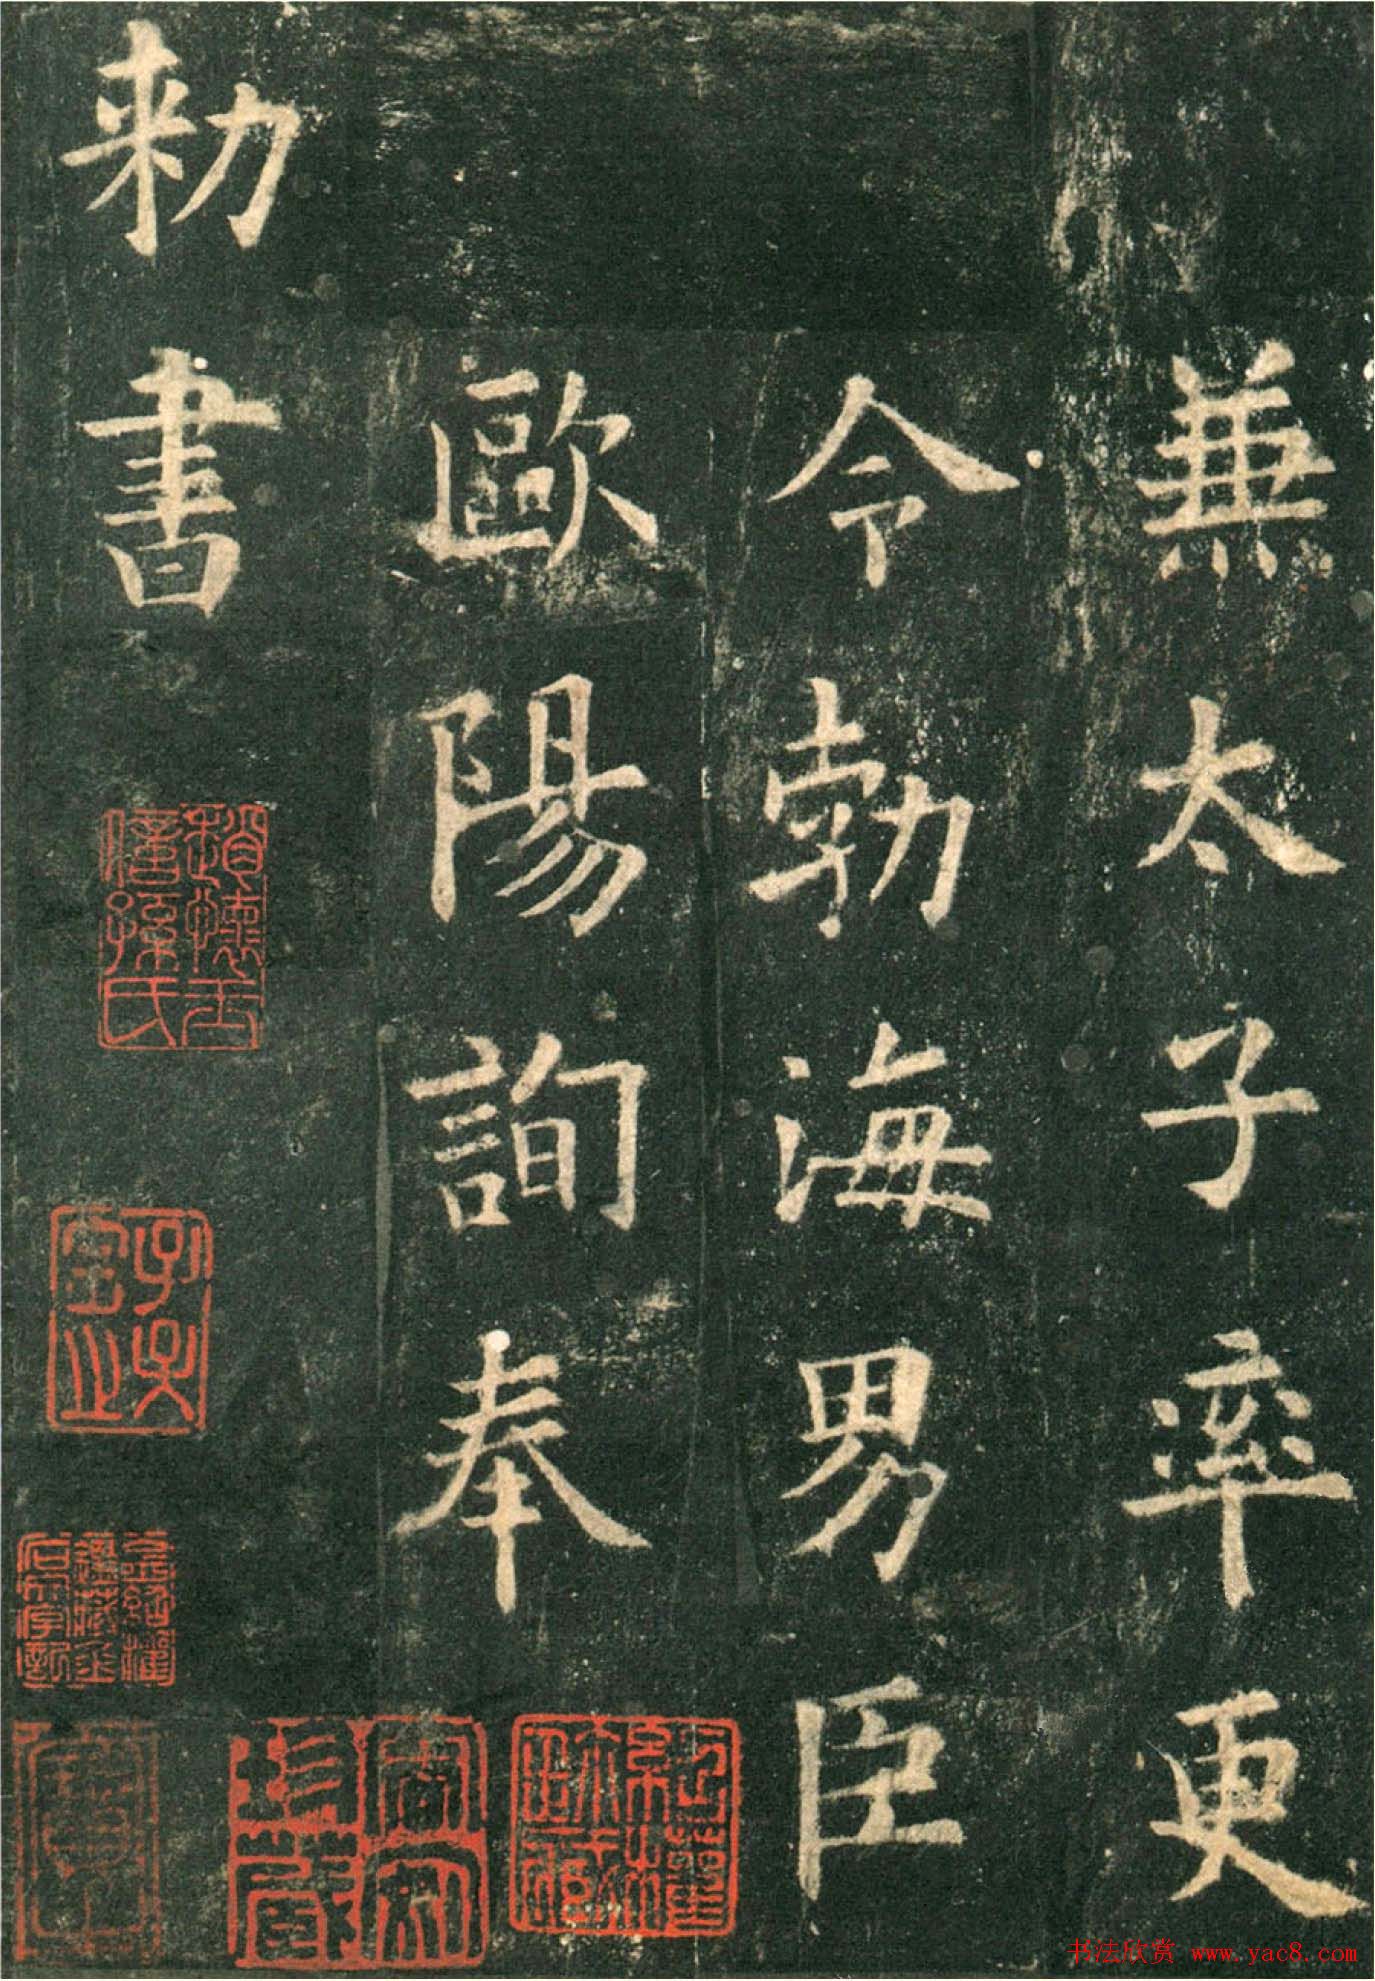 兼太子率更
令勃海男臣
歐陽詢奉
勑書
书法欣赏 www.yac8.com